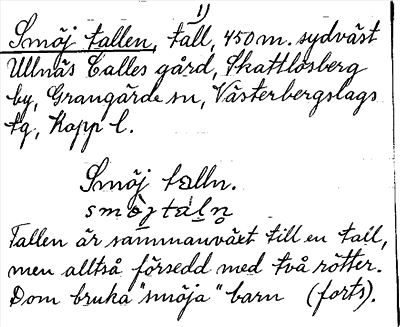 1)
Smöj tallen, tall, 450 m. sydväst
Ullnäs Calles gård, Skattlösberg
by, Grangärde sn, Västerbergslags
tg, Kopp l.
Smöj talln.
Tallen är sammanväxt till en tall,
men alltså försedd med två rötter.
Dom bruka "smöja" barn (forts).